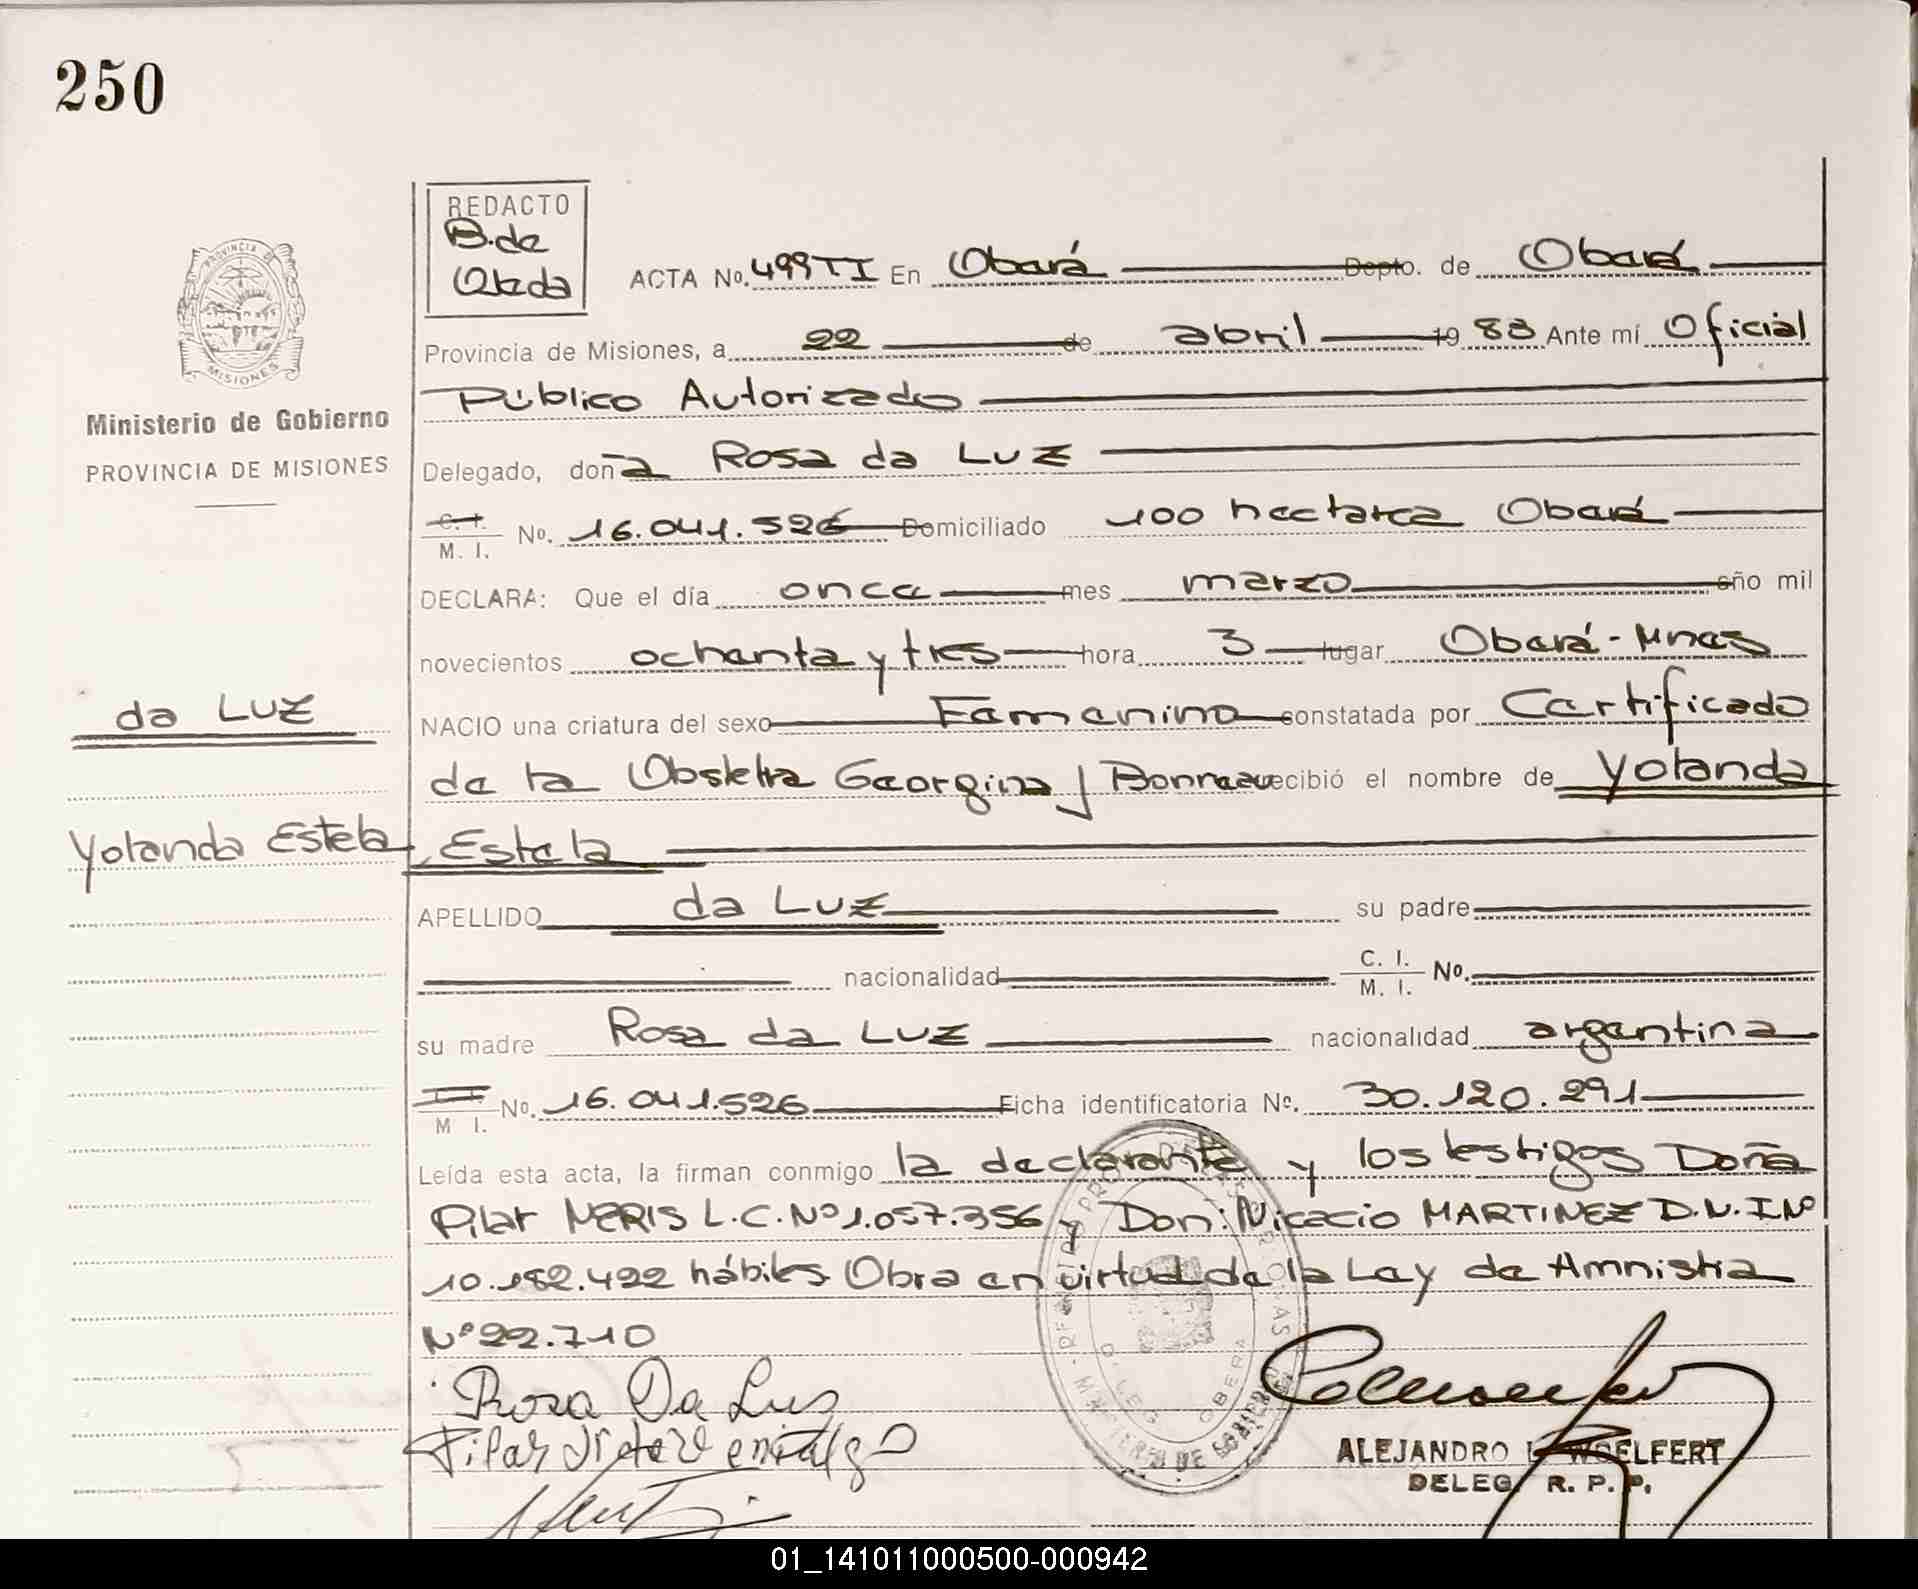 250
REDACTO
B. de
Ojeda
ACTA No. 499 TI En Oberá Depto. de Oberá
Provincia de Misiones, a 22 de abril 19 83 Ante mí Oficial
Público Autorizado
Delegado, doña Rosa da LUZ
C. I. / M. I. No. 16.041.526 Domiciliado 100 hectarea Oberá
DECLARA: Que el día once mes marzo año mil
novecientos ochenta y tres hora 3 lugar Oberá - Mnes
NACIO una criatura del sexo Femenino constatada por Certificado
de la Obstetra Georgina J recibió el nombre de Yolanda
Estela
APELLIDO da LUZ su padre
nacionalidad C. I. / M. I. No.
su madre Rosa da LUZ nacionalidad argentina
M I. No. 16.041.526 Ficha identificatoria No. 30.120.291
Leída esta acta, la firman conmigo la declarante y los testigos Doña
Pilar NERIS L.C. Nº 1.057.356 y Don: Nicacio MARTINEZ D.N.I Nº
10.182.422 hábiles Obra en virtud de la Ley de Amnistia
Nº 22.710
Rosa Da Luz
Pilar
ALEJANDRO L. WOELFERT
DELEG. R. P. P.
PROVINCIA DE
MISIONES
Ministerio de Gobierno
PROVINCIA DE MISIONES
da LUZ
Yolanda Estela
MINISTERIO DE GOBIERNO
DELEG OBERA
01_141011000500-000942